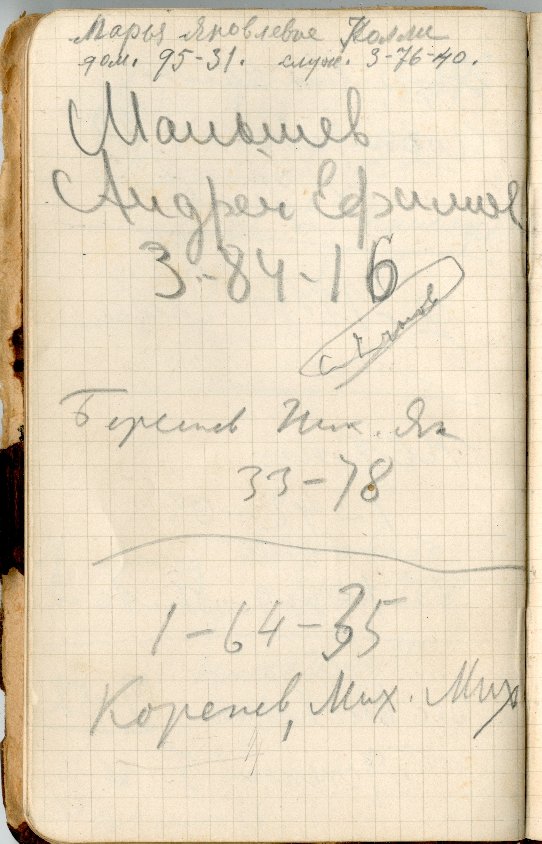 Марья Яковлевое Колли
дом. 95-31. служ. 3-76-40.
Малышев
Андрей Ефимов
3-84-16
Берсенев Ник. Як
33-78
1-64-35
Корепев, Мих. Мих